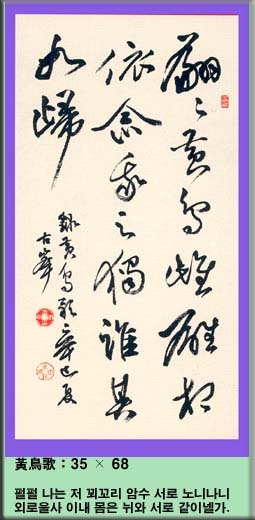 翩〻黃鳥雌雄相
依念我之獨誰其
与歸
錄黃鳥歌 辛巳夏
古峯
黃鳥歌 : 35 × 68
펄펄 나는 저 꾀꼬리 암수 서로 노니나니
외로울사 이내 몸은 뉘와 서로 같이녤가.